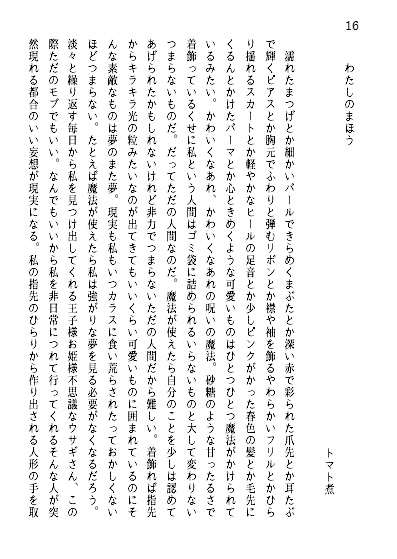 16
わたしのまほう
トマト煮
濡れたまつげとか細かいパールできらめくまぶたとか深い赤で彩られた爪先とか耳たぶ
で輝くピアスとか胸元でふわりと弾むリボンとか襟や袖を飾るやわらかいフリルとかひら
り揺れるスカートとか軽やかなヒールの足音とか少しピンクがかった春色の髪とか毛先に
くるんとかけたパーマとか心ときめくような可愛いものはひとつひとつ魔法がかけられて
いるみたい。かわいくなあれ、かわいくなあれの呪いの魔法。砂糖のような甘ったるさで
着飾っているくせに私という人間はゴミ袋に詰められるいらないものと大して変わりない
つまらないものだ。だってただの人間なのだ。魔法が使えたら自分のことを少しは認めて
あげられたかもしれないけれど非力でつまらないただの人間だから難しい。着飾れば指先
からキラキラ光の粒みたいなのが出てきてもいいくらい可愛いものに囲まれているのにそ
んな素敵なものは夢のまた夢。現実も私もいつカラスに食い荒らされたっておかしくない
ほどつまらない。たとえば魔法が使えたら私は強がりな夢を見る必要がなくなるだろう。
淡々と繰り返す毎日から私を見つけ出してくれる王子様お姫様不思議なウサギさん、この
際ただのモブでもいい。なんでもいいから私を非日常につれて行ってくれるそんな人が突
然現れる都合のいい妄想が現実になる。私の指先のひらりから作り出される人形の手を取